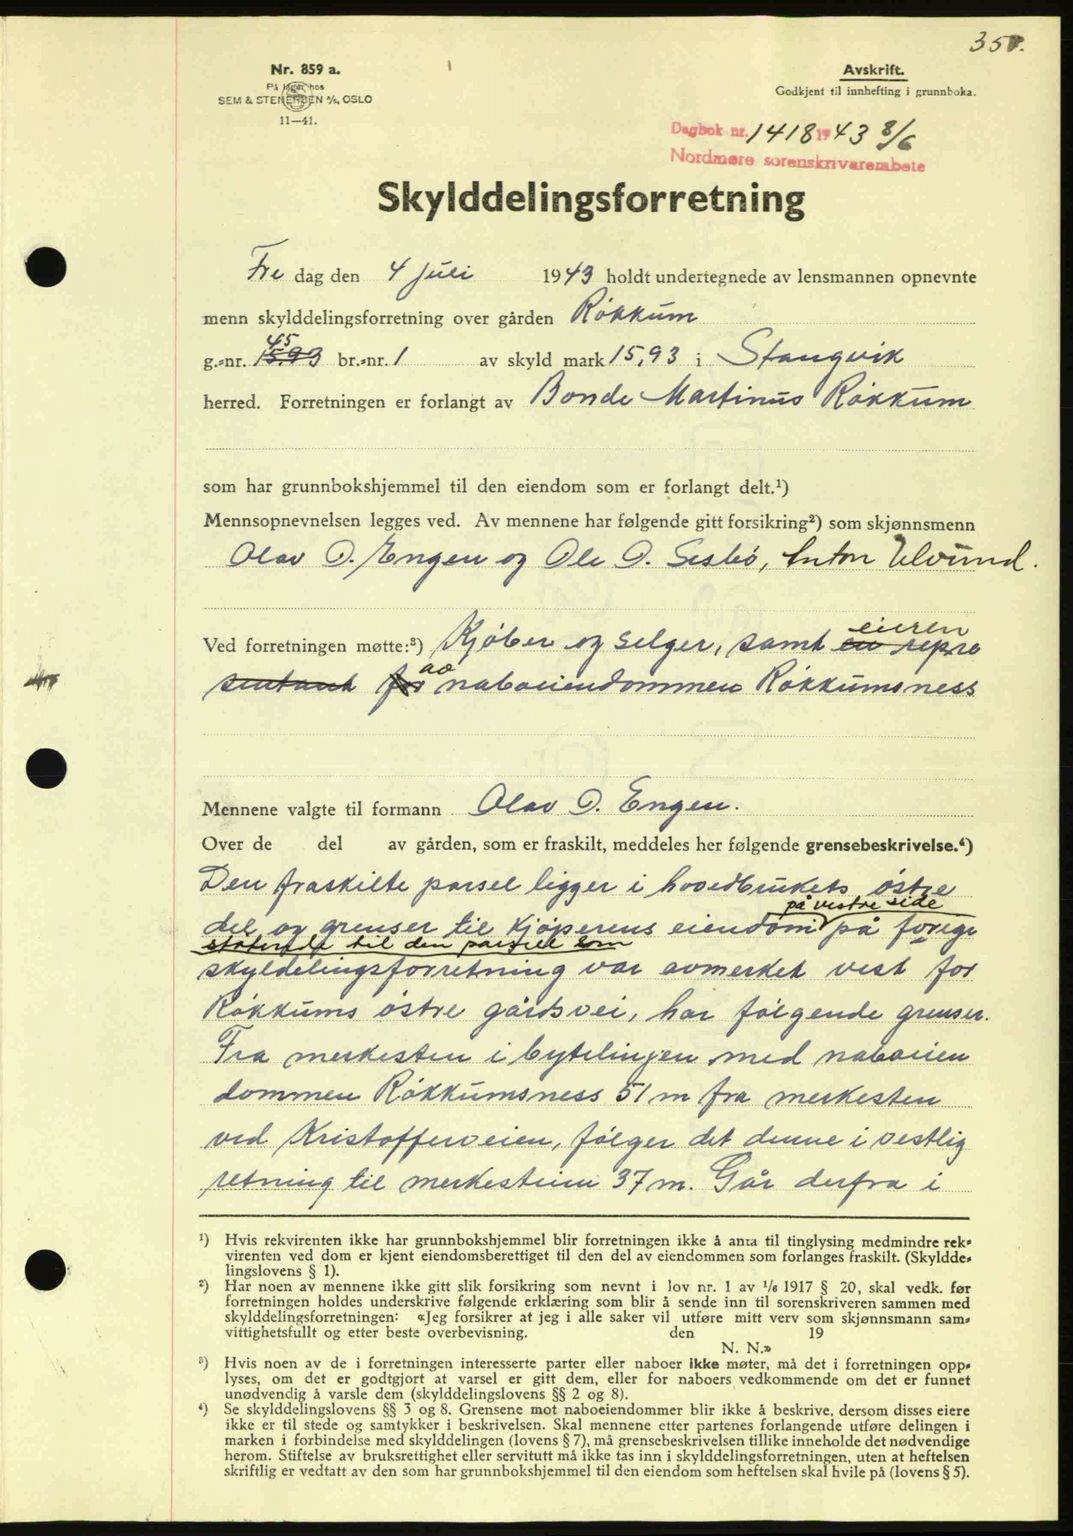 35
Nr. 859 a.
På lager hos
SEM & STENERSEN A/S, OSLO
11—41.
Avskrift.
Godkjent til innhefting i grunnboka.
Dagbok nr. 1418 1943 8/6
Nordmøre sorenskrivarembete
Skylddelingsforretning
Fre dag den 4 juli 1943 holdt undertegnede av lensmannen opnevnte
menn skylddelingsforretning over gården Røkkum
45
g.-nr. 15,93 br.-nr. 1 av skyld mark 15,93 i Stangvik
herred. Forretningen er forlangt av Bonde Martinus Røkkum
som har grunnbokshjemmel til den eiendom som er forlangt delt.¹)
Mennsopnevnelsen legges ved. Av mennene har følgende gitt forsikring²) som skjønnsmenn
Olav O. Engen og Ole O. Sesbø, Anton Ulvund.
eieren
Ved forretningen møtte:³) Kjøber og selger, samt en repre
av
sentant for naboeiendommen Røkkumsness
Mennene valgte til formann Olav O. Engen.
Over de del av gården, som er fraskilt, meddeles her følgende grensebeskrivelse.⁴)
Den fraskilte parsel ligger i hovedbrukets østre
på vestre side
del og grenser til kjøperens eiendom på forige
støtende til den parsell som
skyldelingsforretning var avmerket vest for
Røkkums østre gårdsvei, har følgende grenser.
Fra merkesten i bytelinjen med naboeien
dommen Røkkumsness 51 m fra merkesten
ved Kristofferveien, følger det denne i vestlig
retning til merkesteinn 37 m. Går derfra i
¹) Hvis rekvirenten ikke har grunnbokshjemmel blir forretningen ikke å anta til tinglysing medmindre rek-
virenten ved dom er kjent eiendomsberettiget til den del av eiendommen som forlanges fraskilt. (Skyldde-
lingslovens § 1).
²) Har noen av mennene ikke gitt slik forsikring som nevnt i lov nr. 1 av 1/6 1917 § 20, skal vedk. før
forretningen holdes underskrive følgende erklæring som blir å sende inn til sorenskriveren sammen med
skylddelingsforretningen: «Jeg forsikrer at jeg i alle saker vil utføre mitt verv som skjønnsmann sam-
vittighetsfullt og etter beste overbevisning. den 19
N. N.»
³) Hvis noen av de i forretningen interesserte parter eller naboer ikke møter, må det i forretningen opp-
lyses, om det er godtgjort at varsel er gitt dem, eller for naboers vedkommende om det er funnet
unødvendig å varsle dem (skylddelingslovens §§ 2 og 8).
⁴) Se skylddelingslovens §§ 3 og 8. Grensene mot naboeiendommer blir ikke å beskrive, dersom disses eiere
ikke er til stede og samtykker i beskrivelsen. Skal mennene etter partenes forlangende utføre delingen i
marken i forbindelse med skylddelingen (lovens § 7), må grensebeskrivelsen tillike inneholde det nødvendige
herom. Stiftelse av bruksrettighet eller servitutt må ikke tas inn i skylddelingsforretningen, uten at heftelsen
skriftlig er vedtatt av den som har grunnbokshjemmel til den eiendom som heftelsen skal hvile på (lovens § 5).